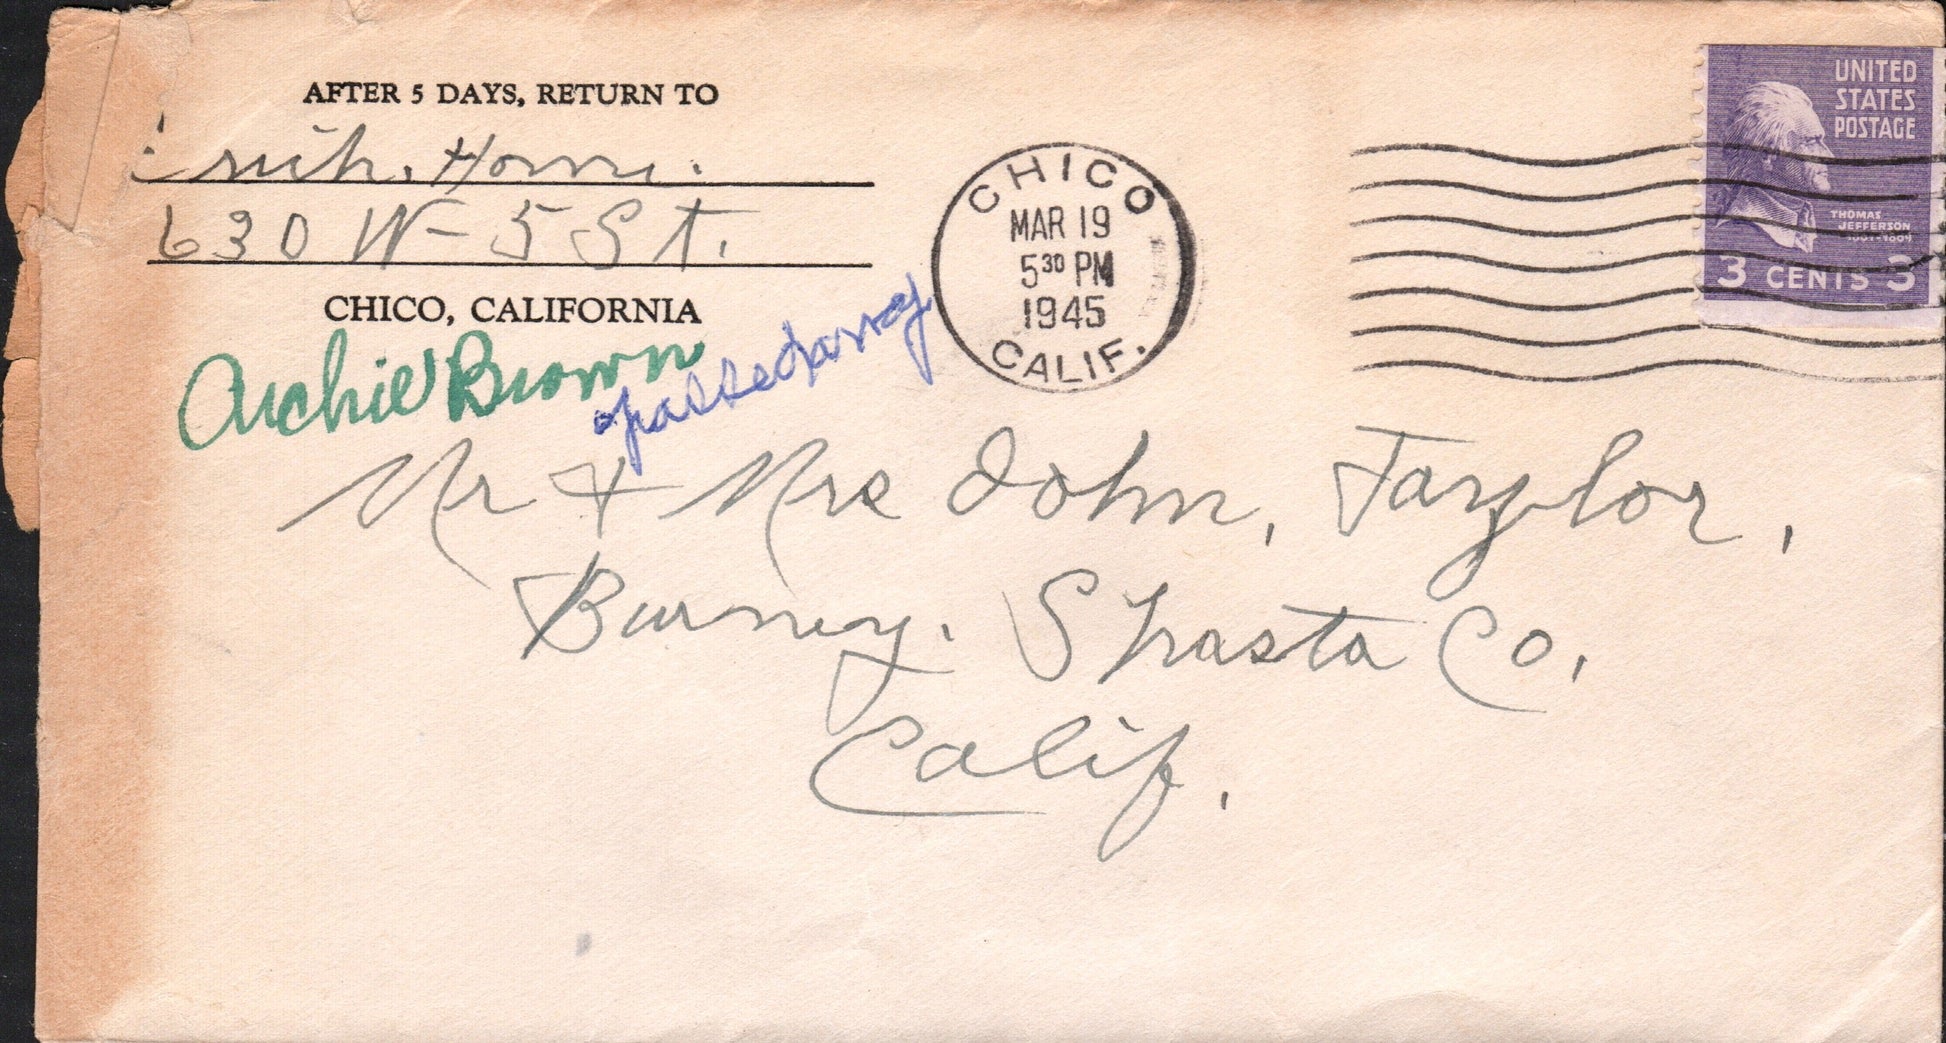 AFTER 5 DAYS, RETURN TO
630 W-5 St.
CHICO, CALIFORNIA
Archie Brown
passed away
CHICO
MAR 19
5 30 PM
1945
CALIF.
UNITED
STATES
POSTAGE
THOMAS
JEFFERSON
1801-1809
3 CENTS 3
Mr & Mrs John, Taylor,
Burney. Shasta Co,
Calif.